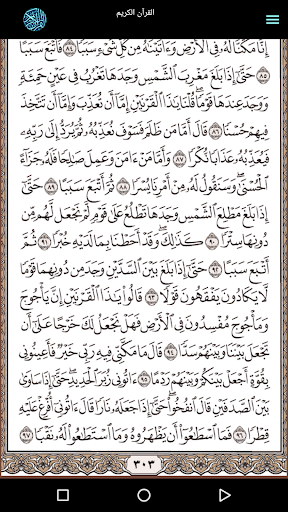 القرآن الكريم
إِنَّا مَكَّنَّا لَهُۥ فِي ٱلْأَرْضِ وَءَاتَيْنَٰهُ مِن كُلِّ شَىْءٍ سَبَبًا ٨٤ فَأَتْبَعَ سَبَبًا
٨٥ حَتَّىٰٓ إِذَا بَلَغَ مَغْرِبَ ٱلشَّمْسِ وَجَدَهَا تَغْرُبُ فِي عَيْنٍ حَمِئَةٍ
وَوَجَدَ عِندَهَا قَوْمًا ۗ قُلْنَا يَٰذَا ٱلْقَرْنَيْنِ إِمَّآ أَن تُعَذِّبَ وَإِمَّآ أَن تَتَّخِذَ
فِيهِمْ حُسْنًا ٨٦ قَالَ أَمَّا مَن ظَلَمَ فَسَوْفَ نُعَذِّبُهُۥ ثُمَّ يُرَدُّ إِلَىٰ رَبِّهِۦ
فَيُعَذِّبُهُۥ عَذَابًا نُّكْرًا ٨٧ وَأَمَّا مَنْ ءَامَنَ وَعَمِلَ صَٰلِحًا فَلَهُۥ جَزَآءً
ٱلْحُسْنَىٰ ۖ وَسَنَقُولُ لَهُۥ مِنْ أَمْرِنَا يُسْرًا ٨٨ ثُمَّ أَتْبَعَ سَبَبًا ٨٩ حَتَّىٰٓ
إِذَا بَلَغَ مَطْلِعَ ٱلشَّمْسِ وَجَدَهَا تَطْلُعُ عَلَىٰ قَوْمٍ لَّمْ نَجْعَل لَّهُم مِّن
دُونِهَا سِتْرًا ٩٠ كَذَٰلِكَ ۖ وَقَدْ أَحَطْنَا بِمَا لَدَيْهِ خُبْرًا ٩١ ثُمَّ
أَتْبَعَ سَبَبًا ٩٢ حَتَّىٰٓ إِذَا بَلَغَ بَيْنَ ٱلسَّدَّيْنِ وَجَدَ مِن دُونِهِمَا قَوْمًا
لَّا يَكَادُونَ يَفْقَهُونَ قَوْلًا ٩٣ قَالُوا۟ يَٰذَا ٱلْقَرْنَيْنِ إِنَّ يَأْجُوجَ
وَمَأْجُوجَ مُفْسِدُونَ فِي ٱلْأَرْضِ فَهَلْ نَجْعَلُ لَكَ خَرْجًا عَلَىٰٓ أَن
تَجْعَلَ بَيْنَنَا وَبَيْنَهُمْ سَدًّا ٩٤ قَالَ مَا مَكَّنِّي فِيهِ رَبِّي خَيْرٌ فَأَعِينُونِي
بِقُوَّةٍ أَجْعَلْ بَيْنَكُمْ وَبَيْنَهُمْ رَدْمًا ٩٥ ءَاتُونِي زُبَرَ ٱلْحَدِيدِ ۖ حَتَّىٰٓ إِذَا سَاوَىٰ
بَيْنَ ٱلصَّدَفَيْنِ قَالَ ٱنفُخُوا۟ ۖ حَتَّىٰٓ إِذَا جَعَلَهُۥ نَارًا قَالَ ءَاتُونِيٓ أُفْرِغْ عَلَيْهِ
قِطْرًا ٩٦ فَمَا ٱسْطَٰعُوٓا۟ أَن يَظْهَرُوهُ وَمَا ٱسْتَطَٰعُوا۟ لَهُۥ نَقْبًا ٩٧
٣٠٣